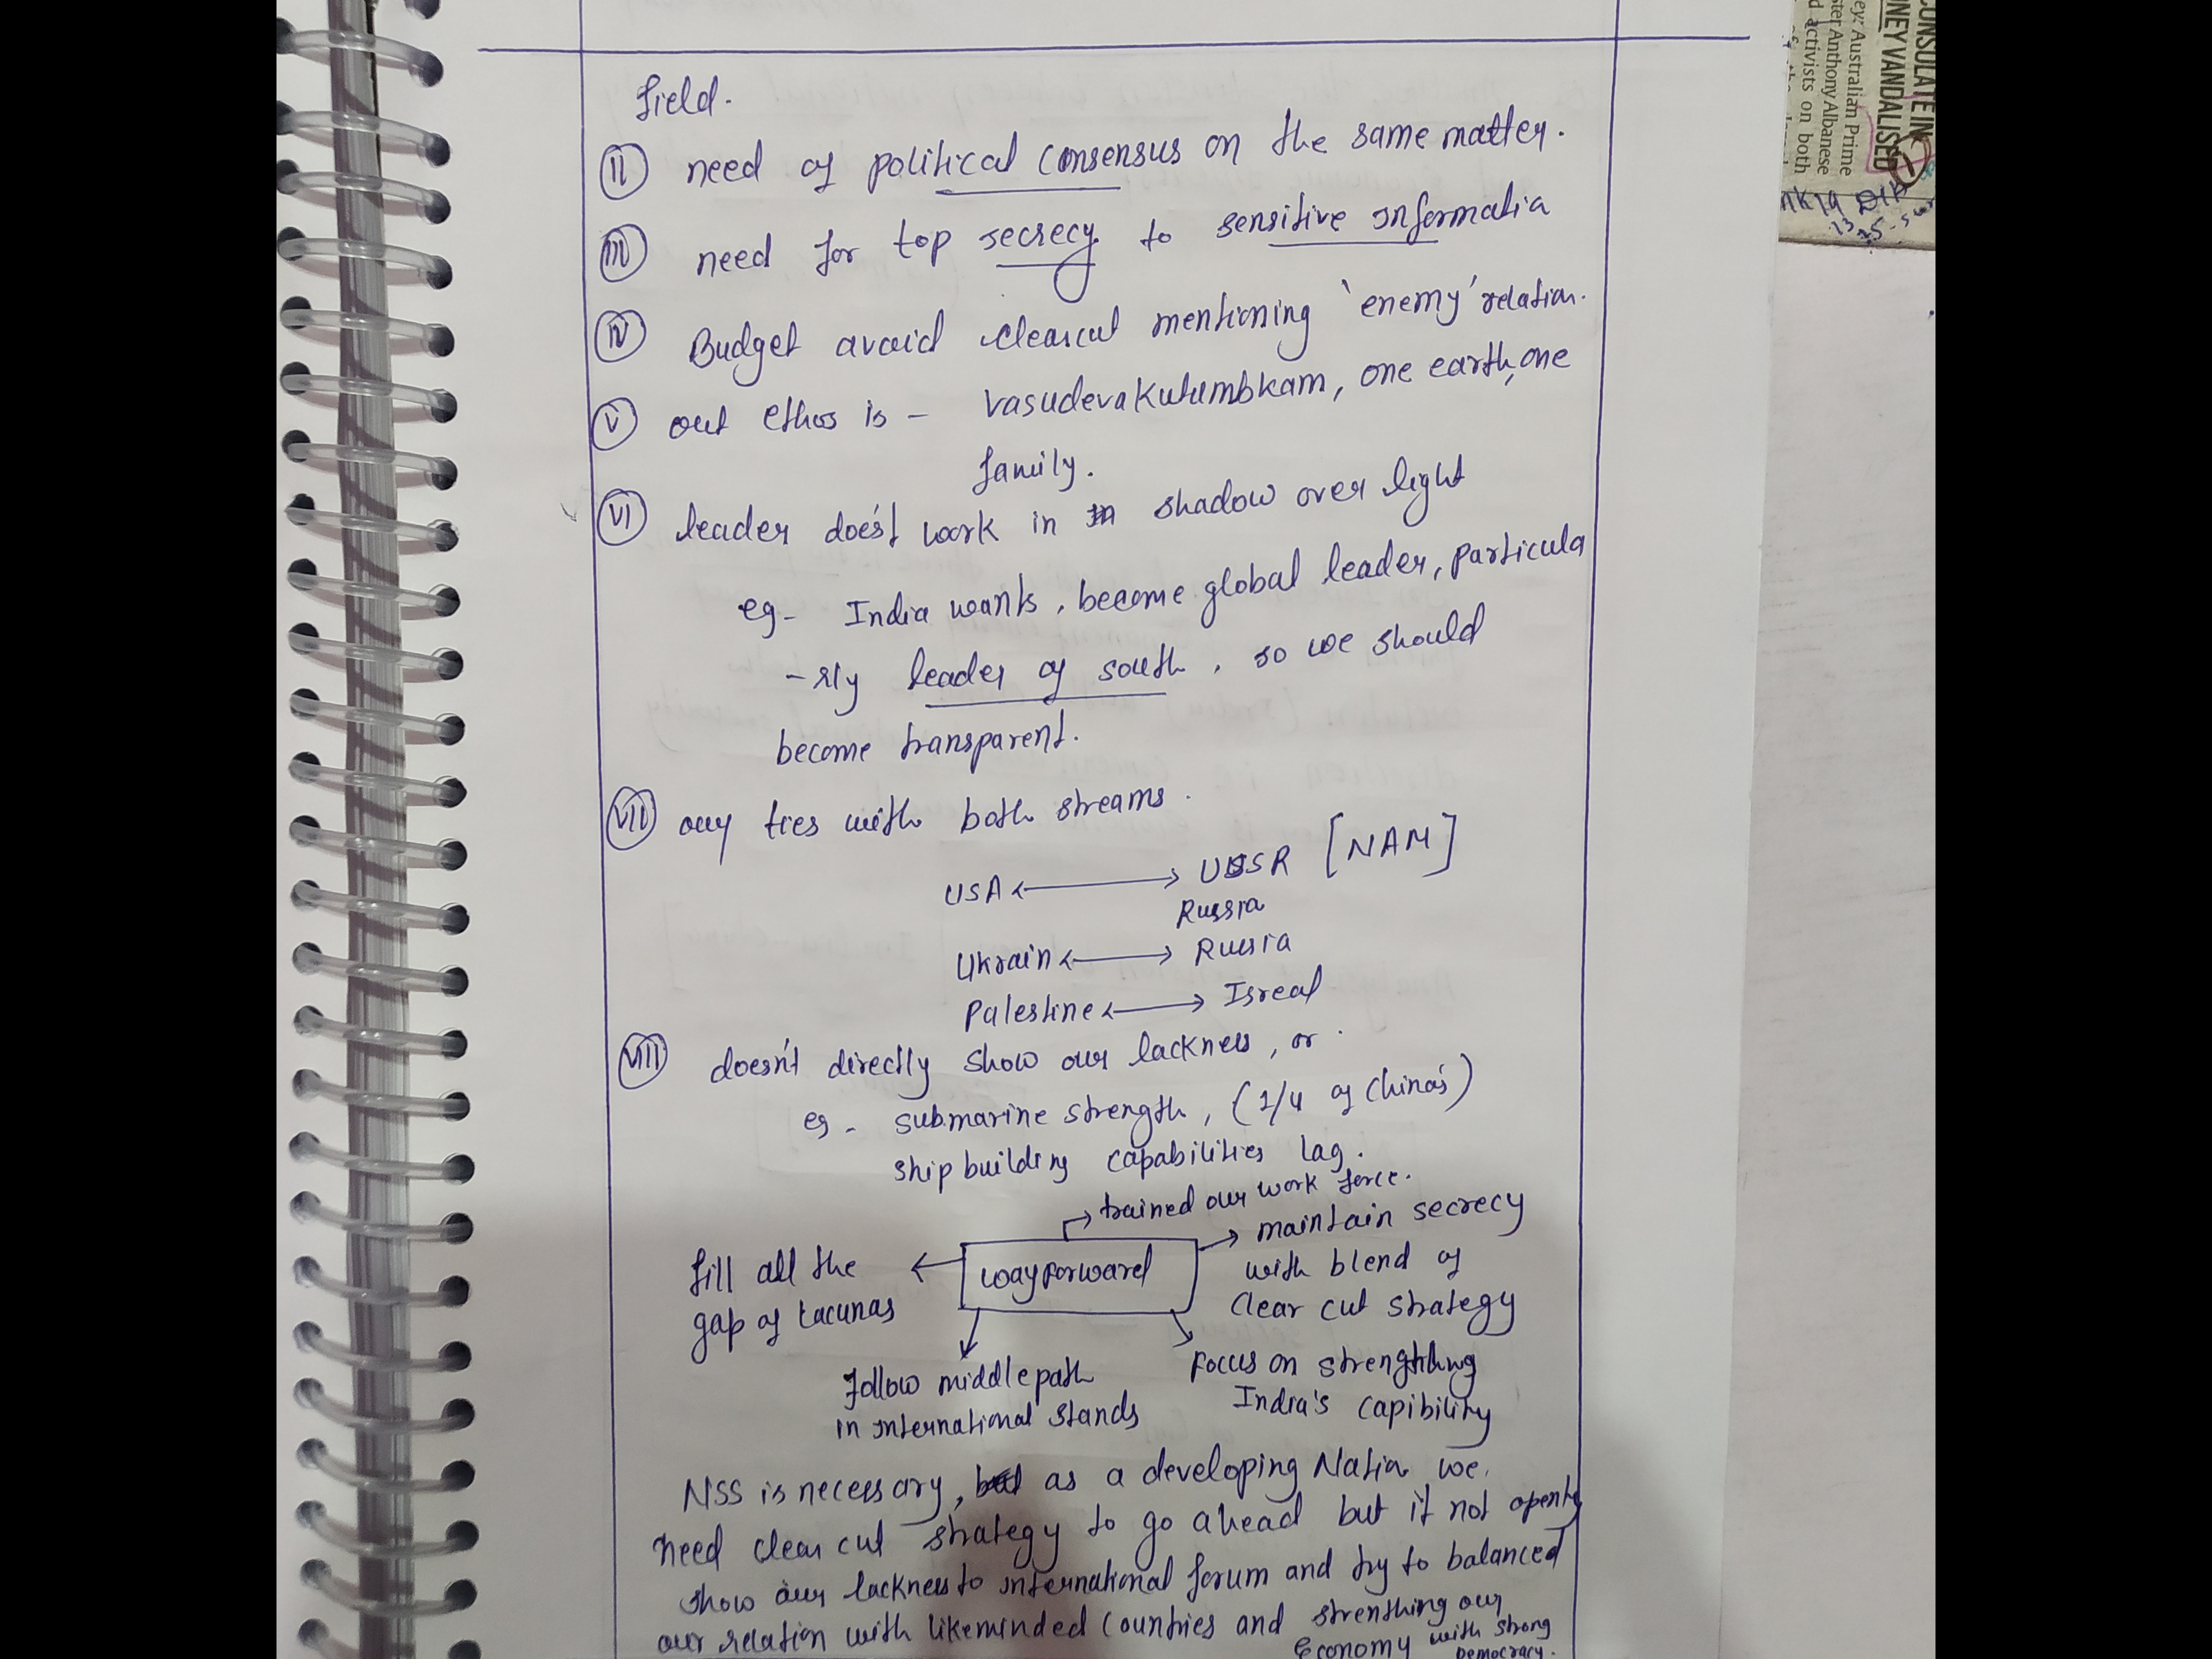 field.
(II) need of political consensus on the same matter.
(III) need for top secrecy to sensitive informatia
(IV) Budget avoid clearcut mentioning 'enemy' relation.
(V) out ethos is - Vasudevakutumbkam, one earth, one
family.
(VI) leader does't work in shadow over light
eg- India wants, become global leader, particula
-rly leader of south, so we should
become transparent.
(VII) our ties with both streams.
USA <-> USSR [NAM]
Russia
Ukrain <-> Russia
Palestine <-> Isreal
(VIII) doesn't directly show our lackness, or
eg - submarine strength, (1/4 of China's)
ship building capabilities lag.
trained our work force.
maintain secrecy
with blend of
clear cut strategy
fill all the
gap of lacunas
wayforward
follow middle path
in international stands
Focus on strengthing
India's capibility
NSS is necessary, as a developing Natia we
need clear cut strategy to go ahead but it not openly
show our lackness to international forum and try to balanced
our relation with likeminded countries and strenthing our
Economy with strong
Democracy.
CONSULATE IN
NEY VANDALISED
ey: Australian Prime
ster Anthony Albanese
d activists on both